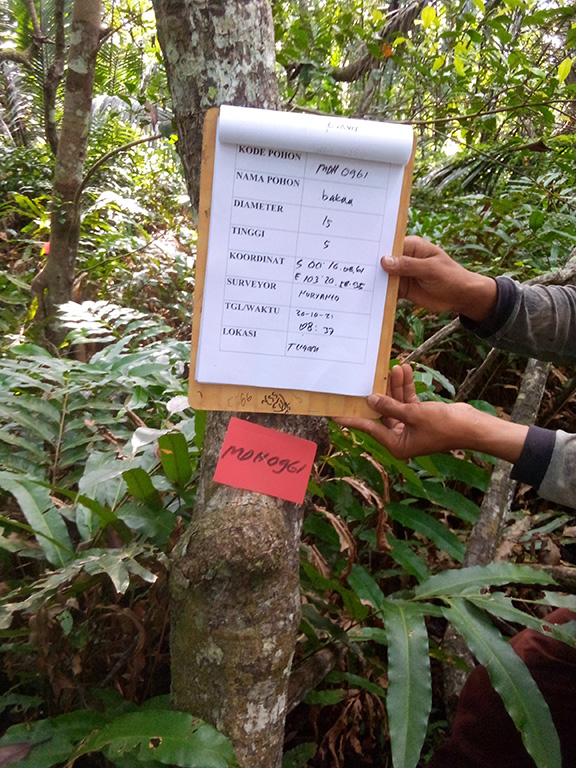 KODE POHON MDH 0961
NAMA POHON bakau
DIAMETER 15
TINGGI 5
KOORDINAT S 00° 16. 08,61
E 103° 20.
SURVEYOR NURYANTO
TGL/WAKTU 20-10-21
08:37
LOKASI
MDH 0961